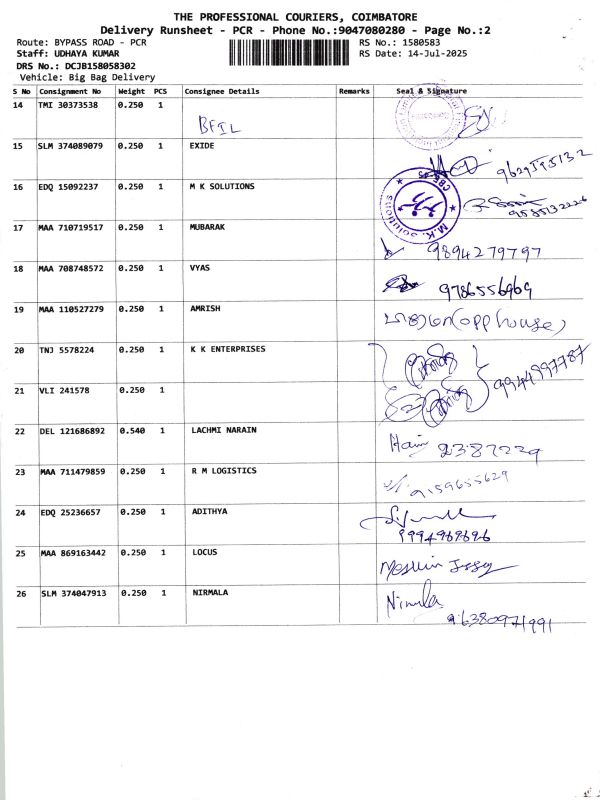 THE PROFESSIONAL COURIERS, COIMBATORE
Delivery Runsheet - PCR - Phone No.:9047080280 - Page No.:2
Route: BYPASS ROAD - PCR RS No.: 1580583
Staff: UDHAYA KUMAR RS Date: 14-Jul-2025
DRS No.: DCJB158058302
Vehicle: Big Bag Delivery
S No Consignment No Weight PCS Consignee Details Remarks Seal & Signature
14 TMI 30373538 0.250 1 BFIL
15 SLM 374089079 0.250 1 EXIDE 9629595132
16 EDQ 15092237 0.250 1 M K SOLUTIONS M.K. Solutions CBE 9585132226
17 MAA 710719517 0.250 1 MUBARAK 9894279797
18 MAA 708748572 0.250 1 VYAS 9786556969
19 MAA 110527279 0.250 1 AMRISH (opp house)
20 TNJ 5578224 0.250 1 K K ENTERPRISES 9944997787
21 VLI 241578 0.250 1
22 DEL 121686892 0.540 1 LACHMI NARAIN Hari 2387229
23 MAA 711479859 0.250 1 R M LOGISTICS 9159655629
24 EDQ 25236657 0.250 1 ADITHYA 9994969696
25 MAA 869163442 0.250 1 LOCUS
26 SLM 374047913 0.250 1 NIRMALA Nirmala 9638097991